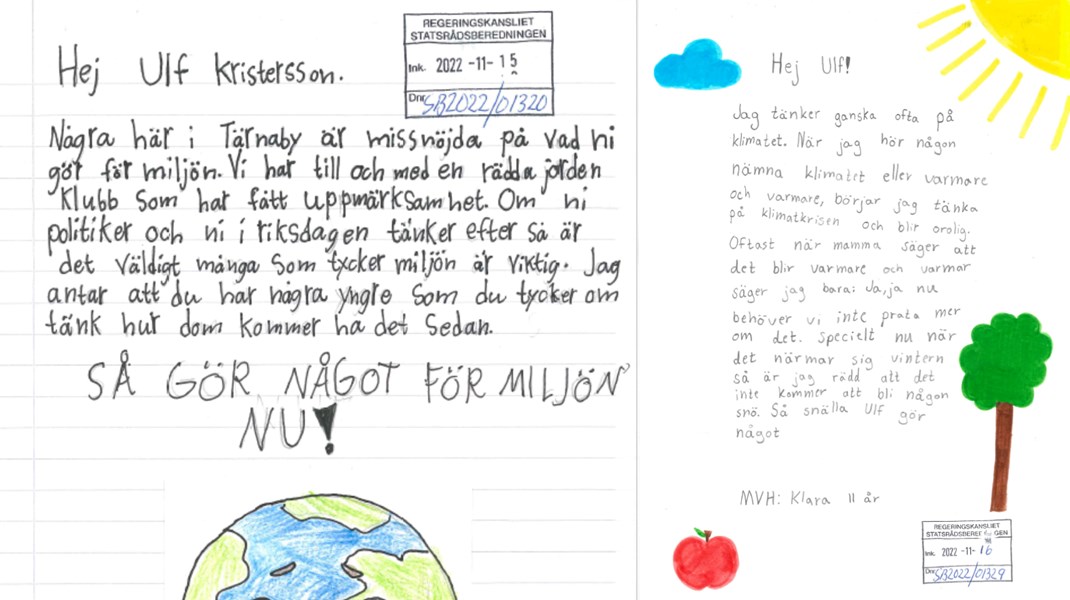 Hej Ulf Kristersson.
REGERINGSKANSLIET
STATSRÅDSBEREDNINGEN
Ink. 2022 -11- 15
Dnr SB2022/01320
Några här i Tärnaby är missnöjda på vad ni
gör för miljön. Vi har till och med en rädda jorden
Klubb som har fått uppmärksamhet. Om ni
politiker och ni i riksdagen tänker efter så är
det väldigt många som tycker miljön är viktig. Jag
antar att du har några yngre som du tycker om
tänk hur dom kommer ha det sedan.
SÅ GÖR NÅGOT FÖR MILJÖN
NU!
Hej Ulf!
Jag tänker ganska ofta på
klimatet. När jag hör någon
nämna klimatet eller varmare
och varmare, börjar jag tänka
på klimatkrisen och blir orolig.
Oftast när mamma säger att
det blir varmare och varmar
säger jag bara: Ja, ja nu
behöver vi inte prata mer
om det. specielt nu när
det närmar sig vintern
så är jag rädd att det
inte kommer att bli någon
snö. Så snälla Ulf gör
något
MVH: Klara 11 år
REGERINGSKANSLIET
STATSRÅDSBEREDNINGEN
Ink. 2022 -11- 16
Dnr SB2022/01329